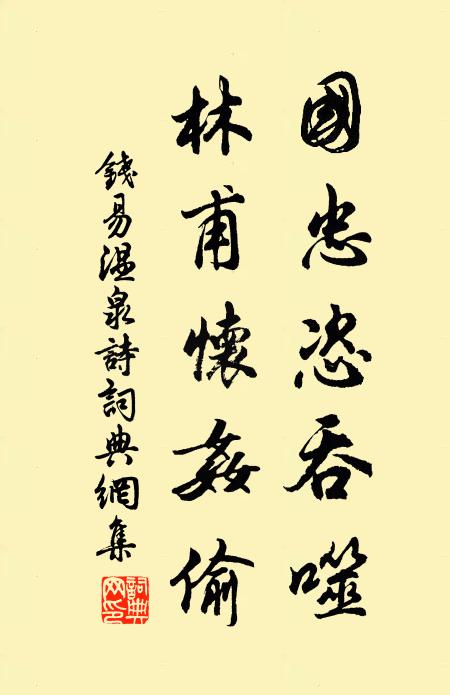 國忠恣吞噬
林甫懷姦偷
錢易溫泉詩詞典網集